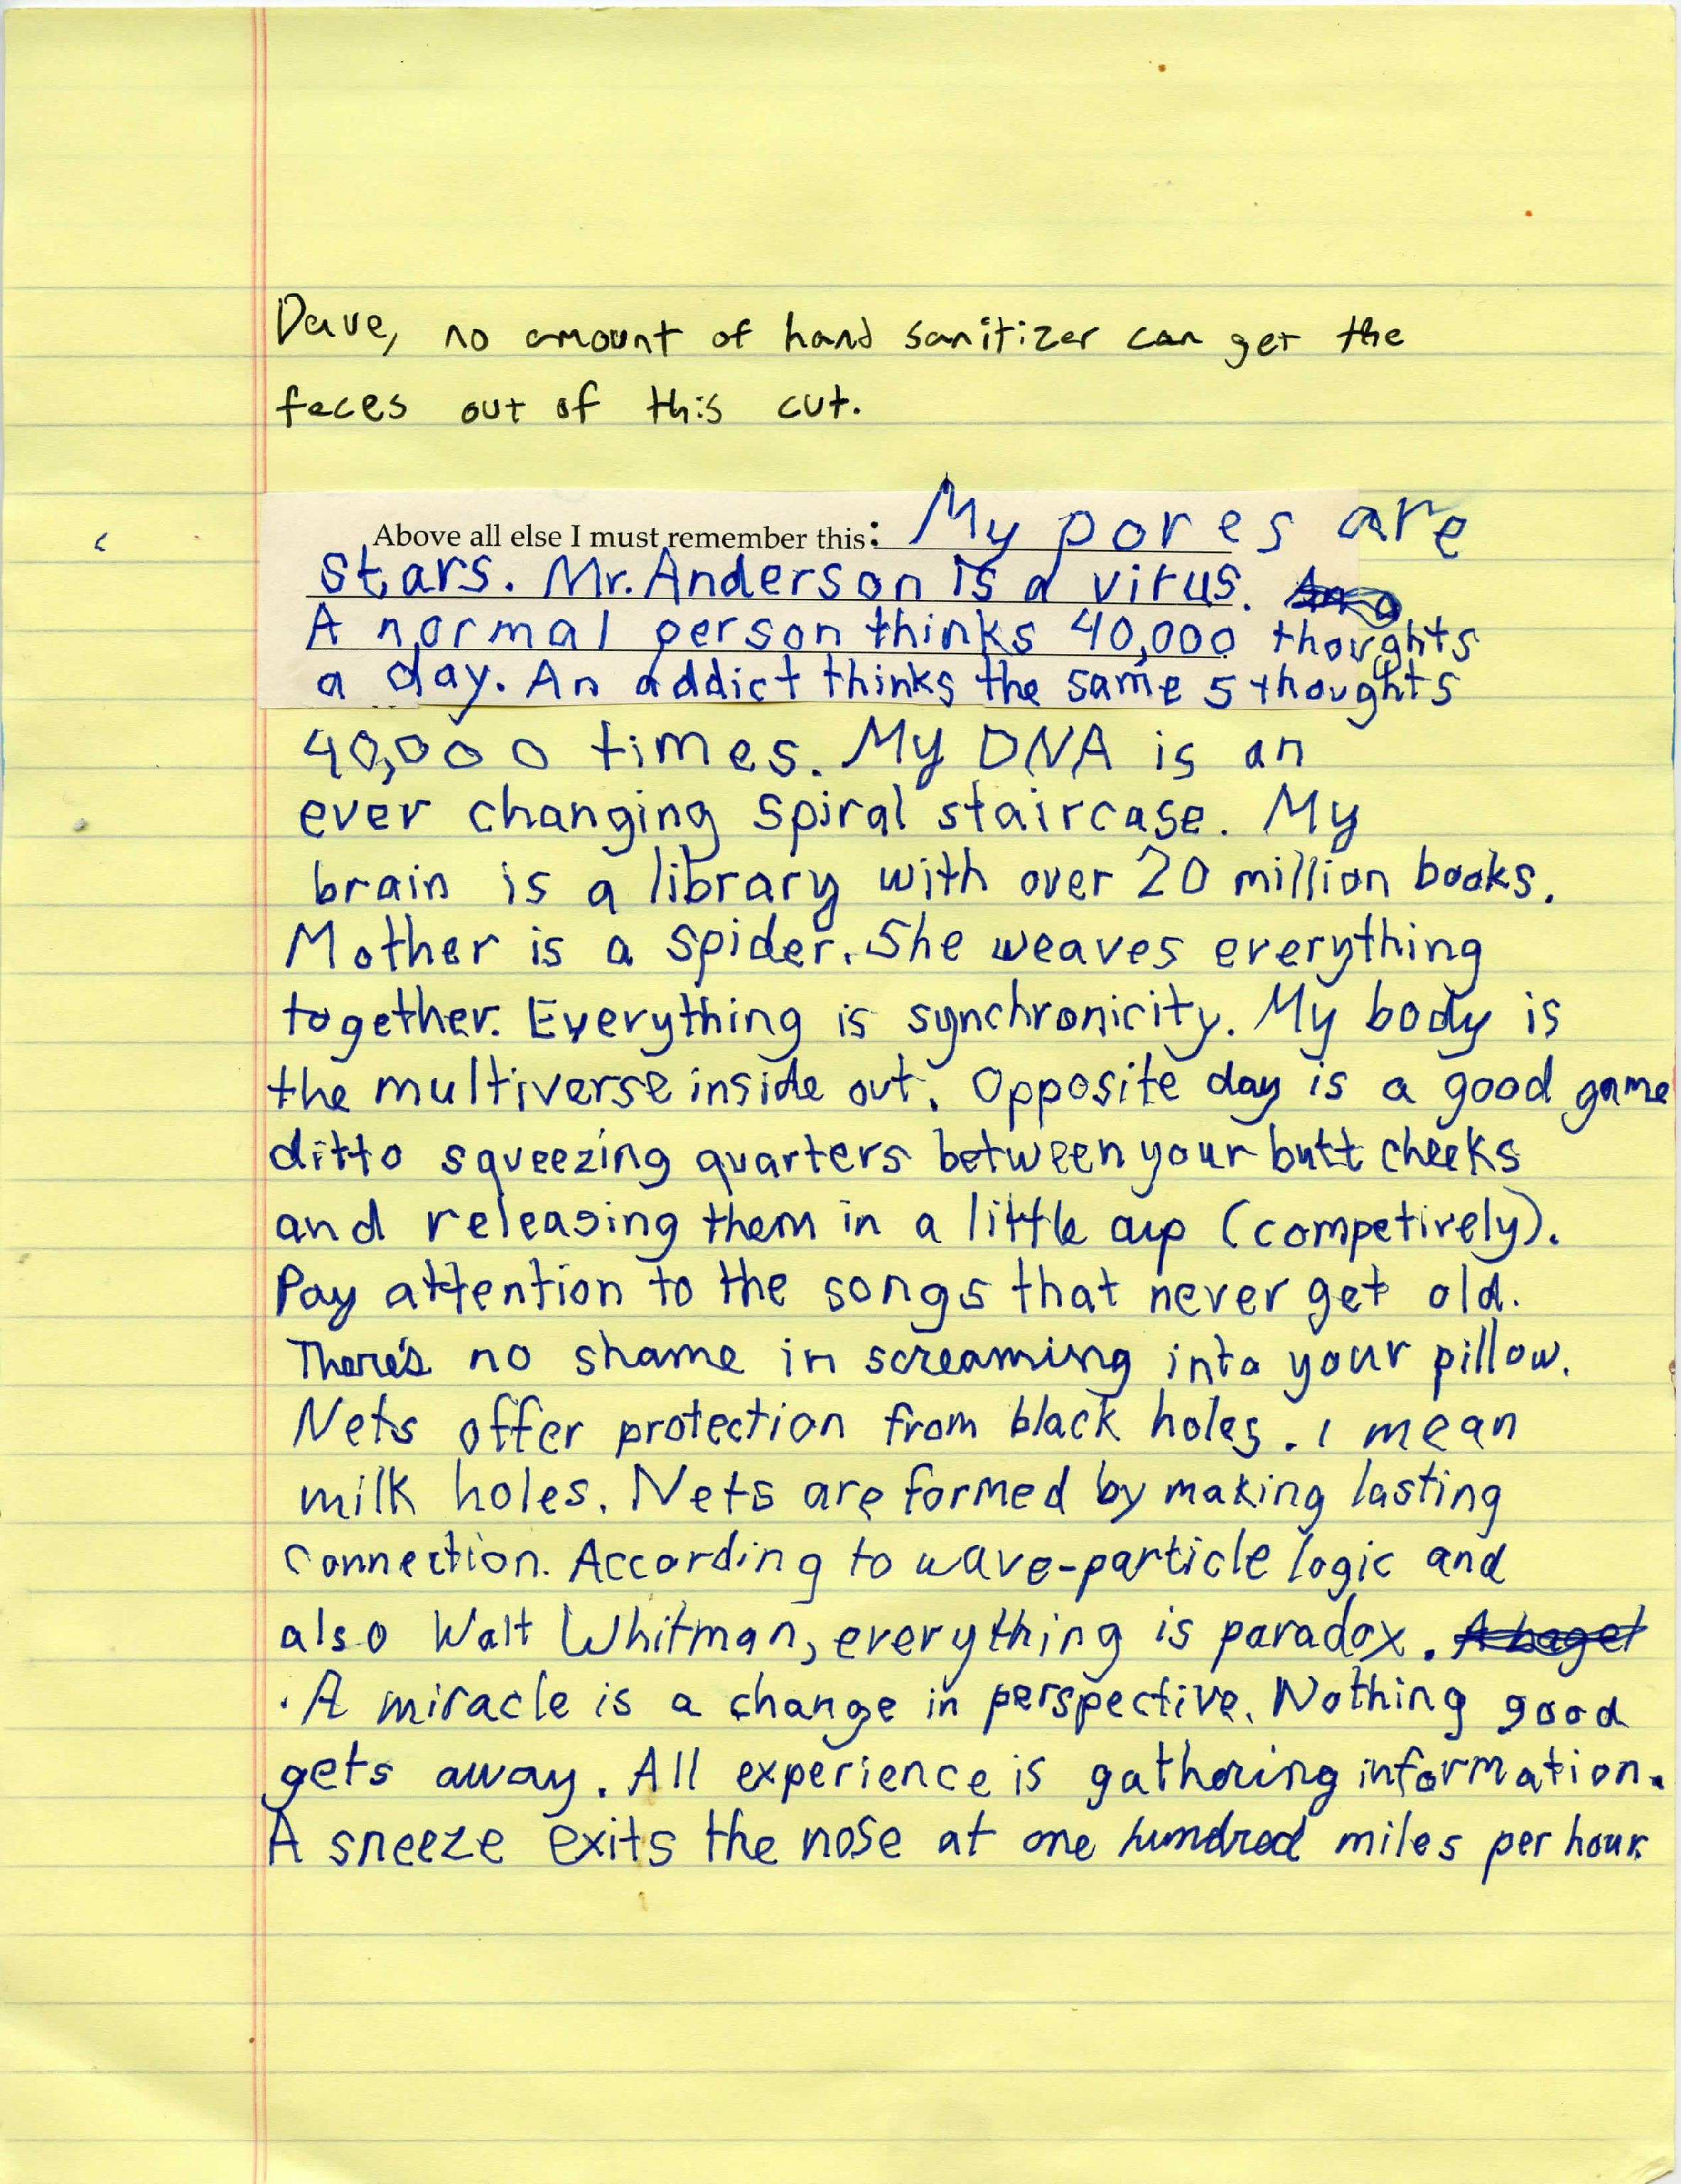 Dave, no amount of hand sanitizer can get the
feces out of this cut.
Above all else I must remember this: My pores are
stars. Mr. Anderson is a virus.
A normal person thinks 40,000 thoughts
a day. An addict thinks the same 5 thoughts
40,000 times. My DNA is an
ever changing spiral staircase. My
brain is a library with over 20 million books.
Mother is a spider. She weaves everything
together. Everything is synchronicity. My body is
the multiverse inside out. Opposite day is a good game
ditto squeezing quarters between your butt cheeks
and releasing them in a little cup (competively).
Pay attention to the songs that never get old.
There's no shame in screaming into your pillow.
Nets offer protection from black holes. I mean
milk holes. Nets are formed by making lasting
connection. According to wave-particle logic and
also Walt Whitman, everything is paradox. A bagel
. A miracle is a change in perspective. Nothing good
gets away. All experience is gathering information.
A sneeze exits the nose at one hundred miles per hour.